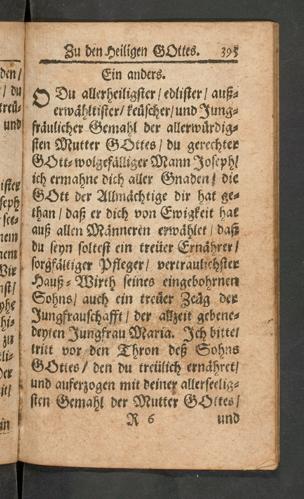 Zu den Heiligen GOttes. 395
Ein anders.
O Du allerheiligster / edlister / auß-
erwähltister / keüscher / und Jung-
fräulicher Gemahl der allerwürdig-
sten Mutter GOttes / du gerechter
GOtt-wolgefälliger Mann Joseph /
ich ermahne dich aller Gnaden / die
GOtt der Allmächtige dir hat ge-
than / daß er dich von Ewigkeit hat
auß allen Männeren erwählet / daß
du seyn soltest ein treüer Ernährer /
sorgfältiger Pfleger / vertraulichster
Hauß-Wirth seines eingebohrnen
Sohns / auch ein treüer Zeüg der
Jungfrauschafft / der allzeit gebene-
deyten Jungfrau Maria. Ich bitte /
tritt vor den Thron deß Sohns
GOttes / den du treülich ernähret /
und auferzogen mit deiner allerseelig-
sten Gemahl der Mutter GOttes /
R 6 und